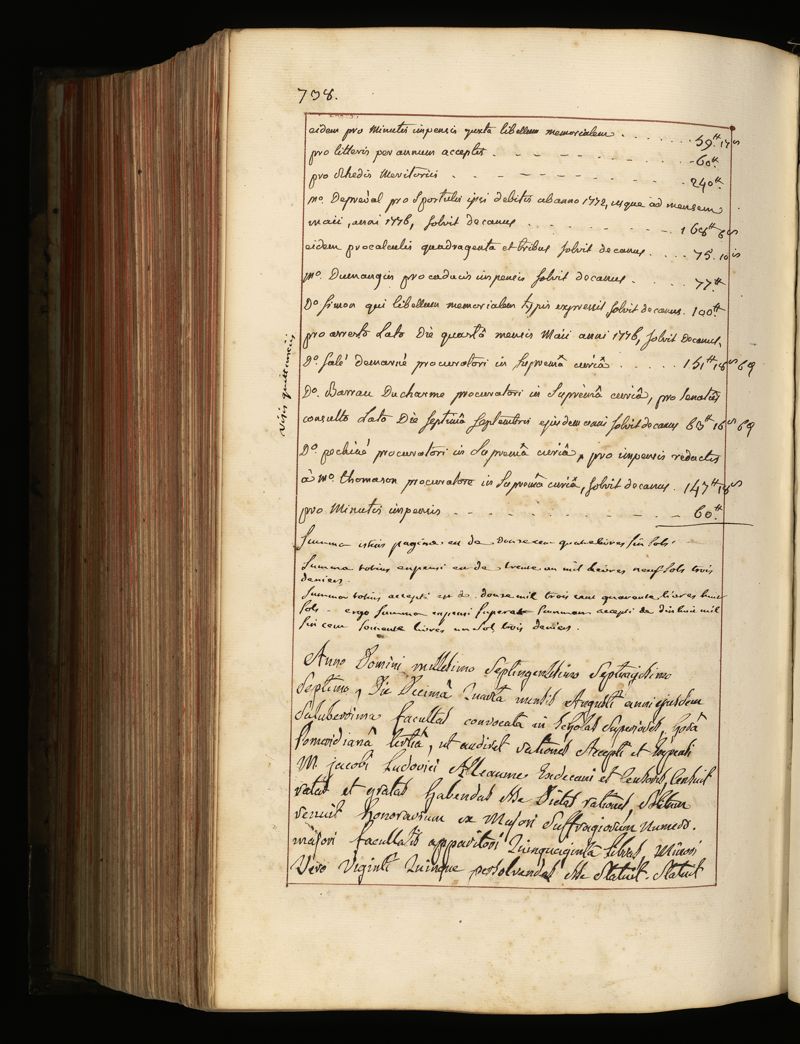 708.
eidem pro Minutis impensis juxta libellum memorialem . . . . . . . 59.tt 17 s
pro litteris per annum acceptis . . . . . . 60.tt
pro schedis Meritoriis . . . . . . . . 240.tt
mo. Depreval pro sportulis ipsi debitis ab anno 1772, usque ad mensem
maii, anni 1776, solvit decanus . . . . . . . . 168tt 8s
eidem pro calculis quadraginta et tribus solvit decanus . . . . 75. 10 s
mo. Dumangin pro caducis impensis solvit decanus . . . . . 77tt.
Do. Simon qui libellum memorialem typis expressit solvit decanus. 100tt.
pro arresto Lato Die quartâ mensis Maii anni 1776, solvit Decanus,
Do. Salé demarné procuratori in Supremâ curiâ . . . . . . 151tt 18s 6d
Do. Barrau Ducharme procuratori in Supremâ curiâ, pro Senatus
consulto Lato Die septimâ Septembris ejusdem anni solvit decanus 63tt 16s 6d
Do. pechiné procuratori in Supremâ curiâ, pro impensis redactis
à mo. thomason procuratore in Supremâ curiâ, solvit decanus . 147tt 18s
pro Minutis impensis . . . . . . . . 60.tt
Summa istius paginæ est de Douze cent quatre livres six sols.
Summa totius expensi est de trente un mil livres neuf sols trois
deniers.
Summa totius accepti est de douze mil trois cent quarante livres huit
sols - ergo summa expensi superat summam accepti de dix huit mil
six cent soixante livres un sol trois deniers.
Anno Domini millesimo Septingentesimo Septuagesimo
Septimo, Die Decimâ Quartâ mensis Augusti anni ejusdem
Saluberrima facultas convocata in Scholas Superiores, horâ
Pomeridianâ tertiâ, ut audiret rationes Accepti et Expensi
M. jacobi Ludovici Alleaume Exdecani et Censoris, Censuit
ratas et gratas habendas esse Dictas rationes, Solitum
venuit honorarium ex Majori Suffragiorum Numero.
majori facultatis apparitori Quinquaginta libras, Minori
Vero Viginti Quinque persolvendas esse Statuit. Statuit